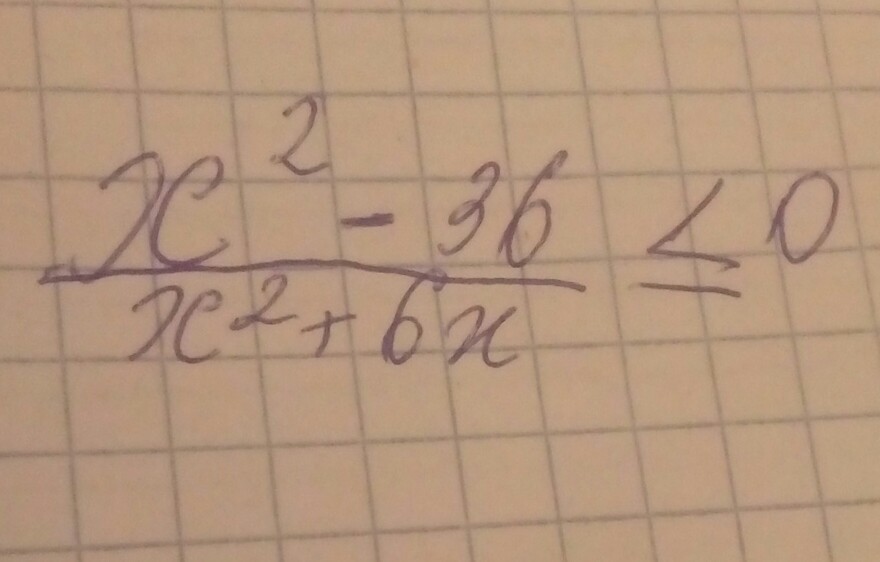 x² - 36
x² + 6x ≤ 0